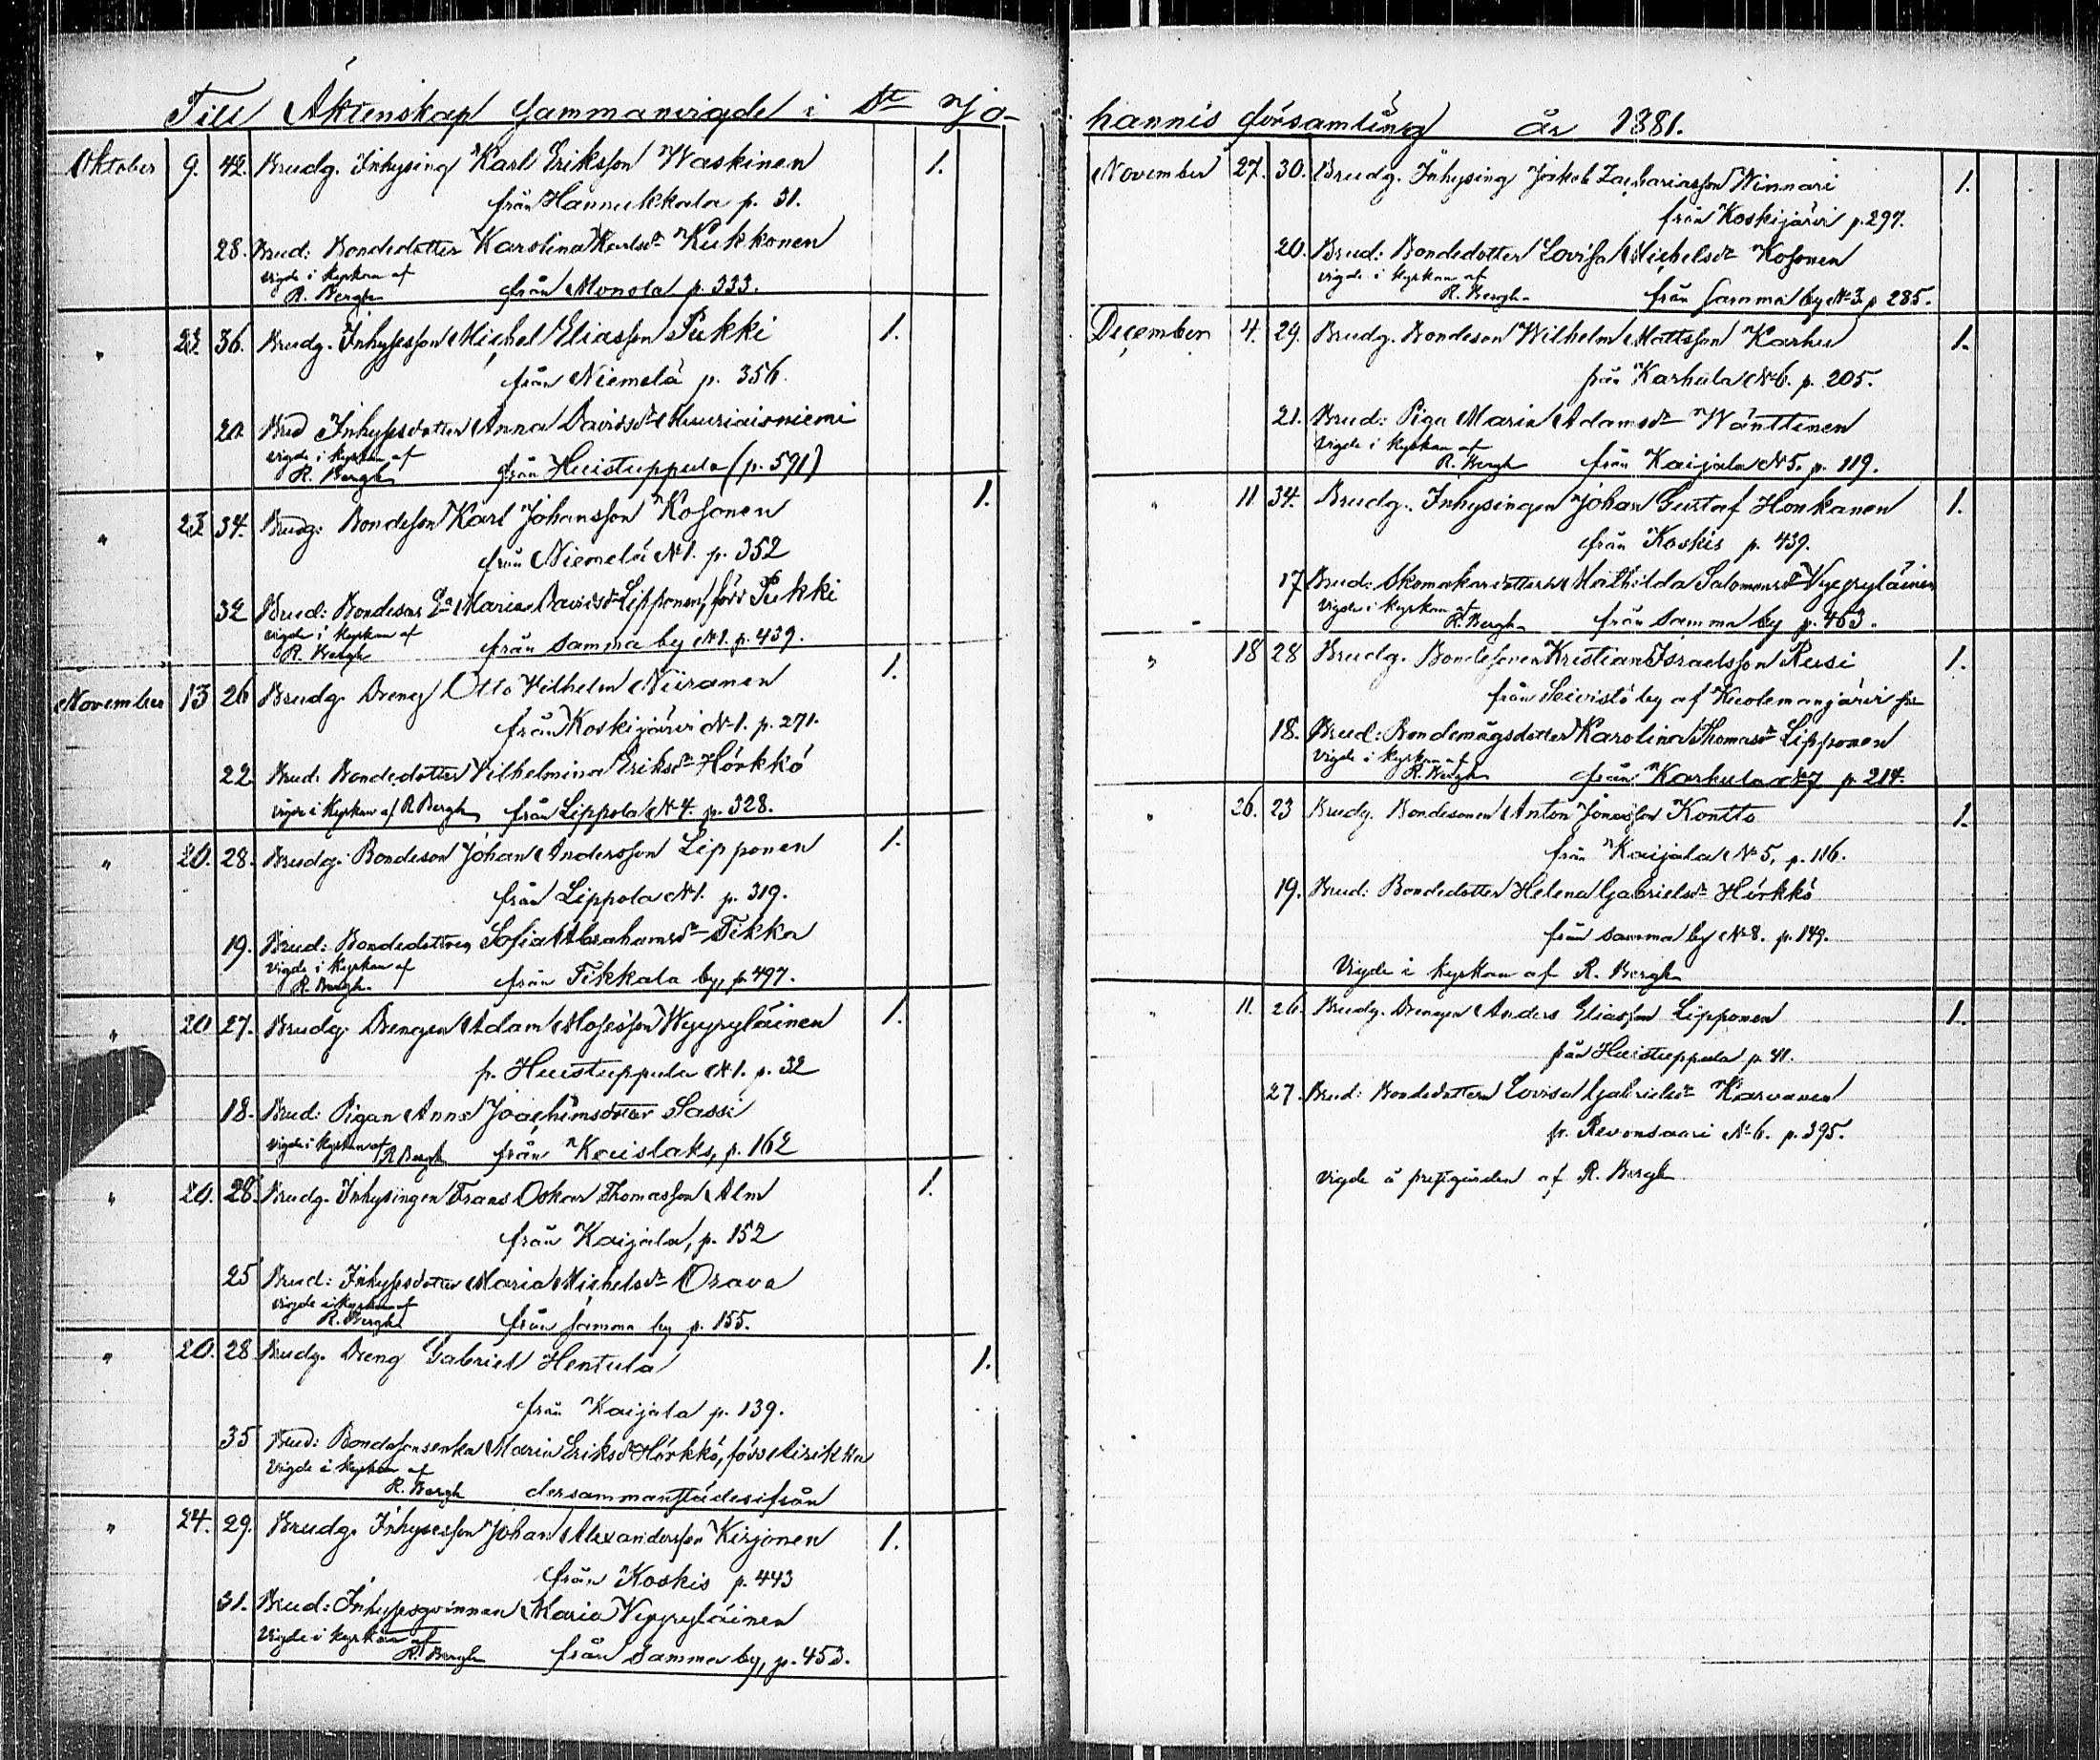 Till Äktenskap Sammanvigde i St Jo-
Oktober 9. 42. Brudg. Inhysing Karl Eriksson Waskinen 1.
från Hannukkala p. 31.
28. Brud: Bondedotter Karolina Karlsdr Kukkonen
vigde i kyrkan af
R. Bergh från Monola p. 333.
" 23. 36. Brudg. Inhysesson Michel Eliasson Pukki 1.
från Niemelä p. 356.
20 Brud Inhysesdotter Anna Davidsdr
vigde i kyrkan af
R. Bergh från Huistuppula (p. 591)
" 23 34. Brudg: Bondeson Karl Johansson Kosonen 1.
från Niemelä No 1. p. 352
32 Brud: Bondesons Ea Maria Davidsdr Lipponen, född Pukki
vigde i kyrkan af
R. Bergh från samma by No 1. p. 439.
November 13 26 Brudg. Dreng Otto Vilhelm Niiranen 1.
från Koskijärvi No 1. p. 271.
22 Brud. Bondedotter Vilhelmina Eriksdr Hörkkö
vigde i kyrkan af R Bergh från Lippola No 4. p. 328.
" 20. 28. Brudg: Bondeson Johan Andersson Lipponen 1.
från Lippola No 1. p. 319.
19. Brud: Bondedottren Sofia Abrahamsdr Tikka
vigde i kyrkan af
R. Bergh. från Tikkala by, p. 497.
" 20 27. Brudg. Drengen Adam Mosesson Wyyryläinen 1.
fr. Huistuppula No 1. p. 32
18. Brud: Pigan Anna Joachimsdotter Sassi
vigde i kyrkan af R Bergh från Kouislaks, p. 162
" 20. 28. Brudg. Inhysingen Frans Oskar Thomasson Alm 1.
från Kaijala, p. 152
25 Brud: Inhysesdotter Maria Michelsdr Orava
vigde i kyrkan af
R. Bergh från samma by p. 155.
" 20. 28 Brudg. Dreng Gabriel Hentula 1.
från Kaijala p. 139.
35 Brud: Bondesonsenka Maria Eriksdr Hörkkö, född
vigde i kyrkan af
R. Bergh dersammanstädesifrån
" 24. 29. Brudg. Inhysesson Johan Alexandersson Kirjonen 1.
från Koskis p. 443
31. Brud: Inhysesqvinnan Maria Vyyryläinen
vigde i kyrkan af
R. Bergh från Samma by, p. 453.
hannis församling år 1881.
November 27. 30. Brudg. Inhysing Jakob Zachariasson Ninnari 1.
från Koskijärvi p. 297.
20. Brud: Bondedotter Lovisa Michelsdr Kosonen
vigde i kyrkan af
R. Bergh från samma by No 3 p 285.
December 4. 29. Brudg. Bondeson Wilhelm Mattsson Karhu 1.
från Karhula No 6. p. 205.
21. Brud: Piga Maria Adamsdr Wänttinen
vigde i kyrkan af
R. Bergh från Kaijala No 5. p. 119.
" 11 34. Brudg. Inhysingen Johan Gustaf Honkanen 1.
från Koskis p. 439.
17 Brud: Skomakaredotter Mathilda Salomonsdr Vyyryläinen
vigde i kyrkan af
R. Bergh från samma by p. 463.
" 18 28 Brudg. Bondesonen Kristian Israelsson Russi 1.
från Seivistö by af Kuolemanjärvi
18. Brud: Bondemågsdotter Karolina Thomasdr Lipponen
vigde i kyrkan af
R. Bergh från Karhula No 7 p. 214.
" 26. 23 Brudg. Bondesonen Anton Jonasson Kontto 1.
från Kaijala No 5, p. 116.
19. Brud: Bondedotter Helena Gabrielsdr Hörkkö
från samma by No 8. p. 149.
Vigde i kyrkan af R. Bergh
" 11. 26. Brudg. Drengen Anders Eliasson Lipponen 1.
från Huistuppula p. 41.
27. Brud: Bondedottern Lovisa Gabrielsdr Karvanen
fr. Revonsaari No 6. p. 395.
vigde å prestgården af R. Bergh